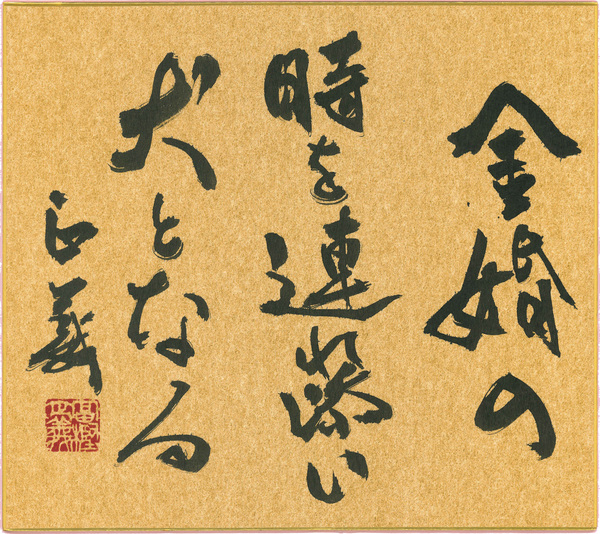 金婚の
時を連れ添い
犬となる
正義